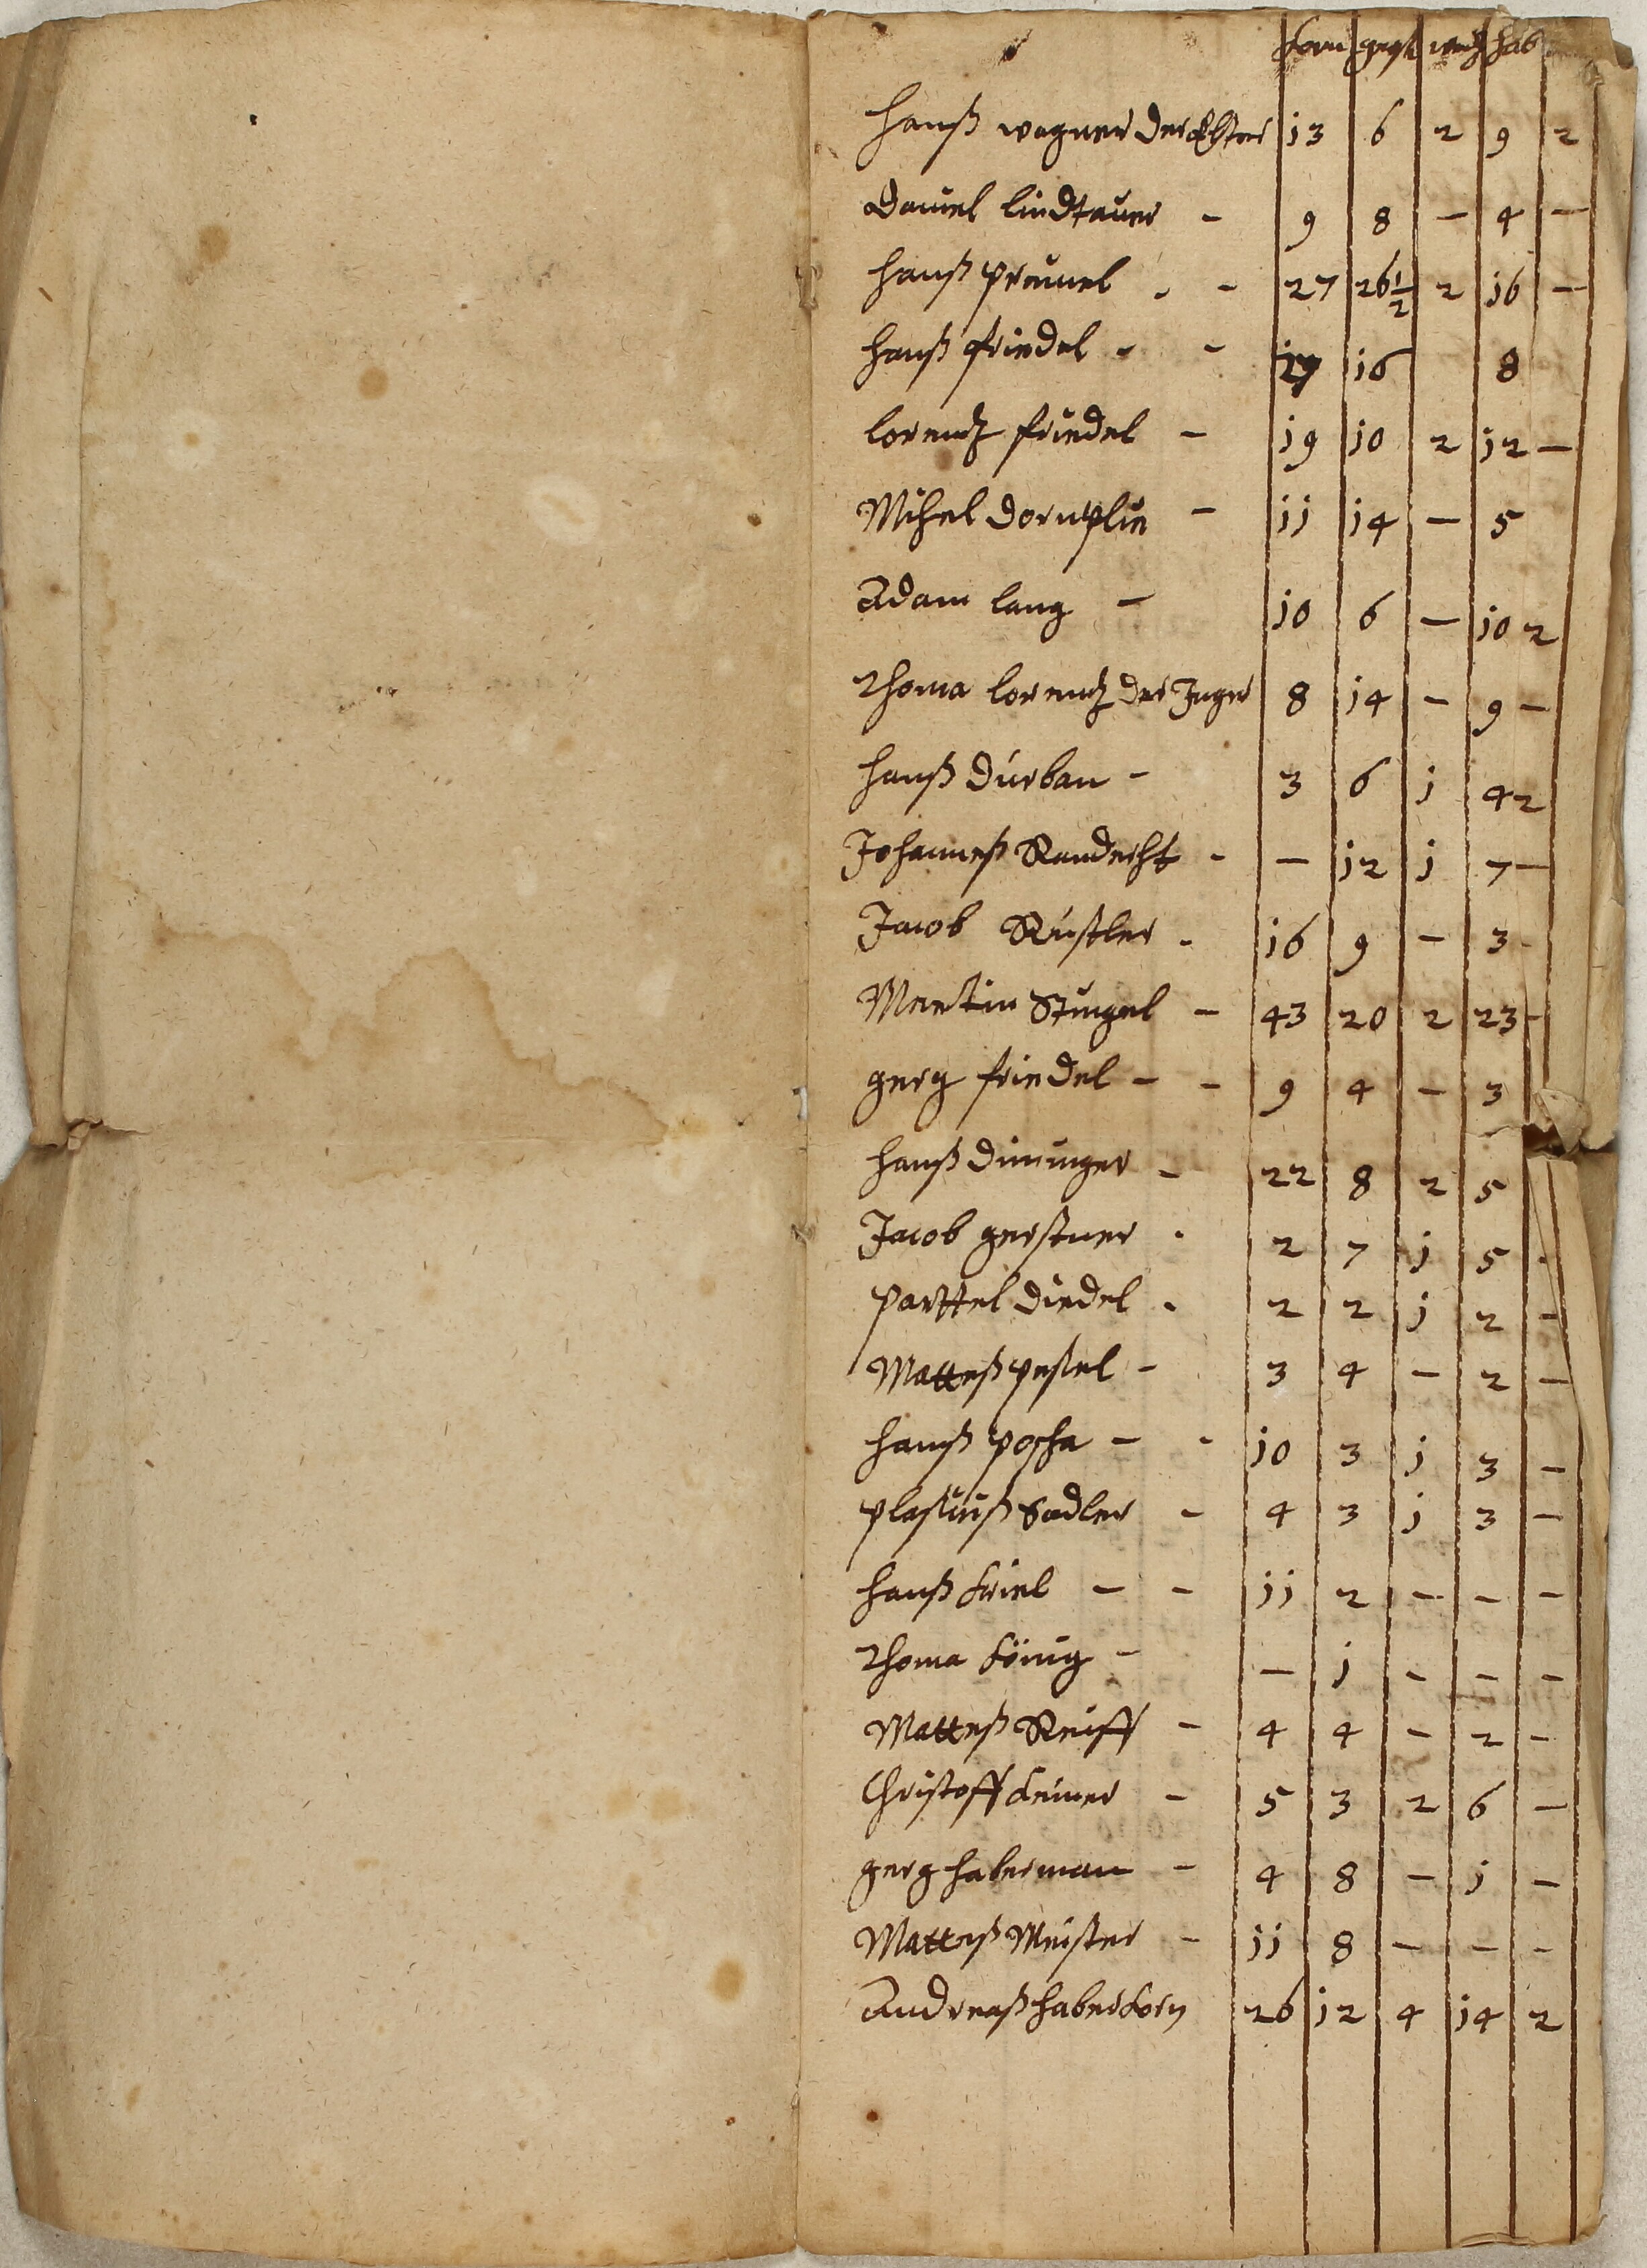 korn gerst waitz hab
hanß wagner der Elter 13 6 2 9 2
Daniel lindtauer - 9 8 - 4 -
hanß preinel - - 27 26½ 2 16 -
hanß friedel - - 16 8
lorentz friedel - 19 10 2 12 -
Mihel dornplün - 11 14 - 5
Adam lang - 10 6 - 10 2
Thoma lorentz der Junger 8 14 - 9 -
hanß Durban - 3 6 1 4 2
Johanneß Randecht - - 12 1 7 -
Jacob Reistler - 16 9 - 3 -
Martin Stingel - 43 20 2 23 -
gerg friedel - - 9 4 - 3
hanß dininger - 22 8 2 5
Jacob gerstner - 2 7 1 5 -
parttel diedel - 2 2 1 2 -
Matteß pestel - 3 4 - 2 -
hanß poscha - - 10 3 1 3 -
plasiuß Sadler - 4 3 1 3 -
hanß kriel - - 11 2 - - -
Thoma könig - - 1 - - -
Matteß Reiff - 4 4 - 2 -
Christoff keiner - 5 3 2 6 -
gerg haberman - 4 8 - 1 -
Matteß Meister - 11 8 - - -
Andreaß haberkorn 26 12 4 14 2